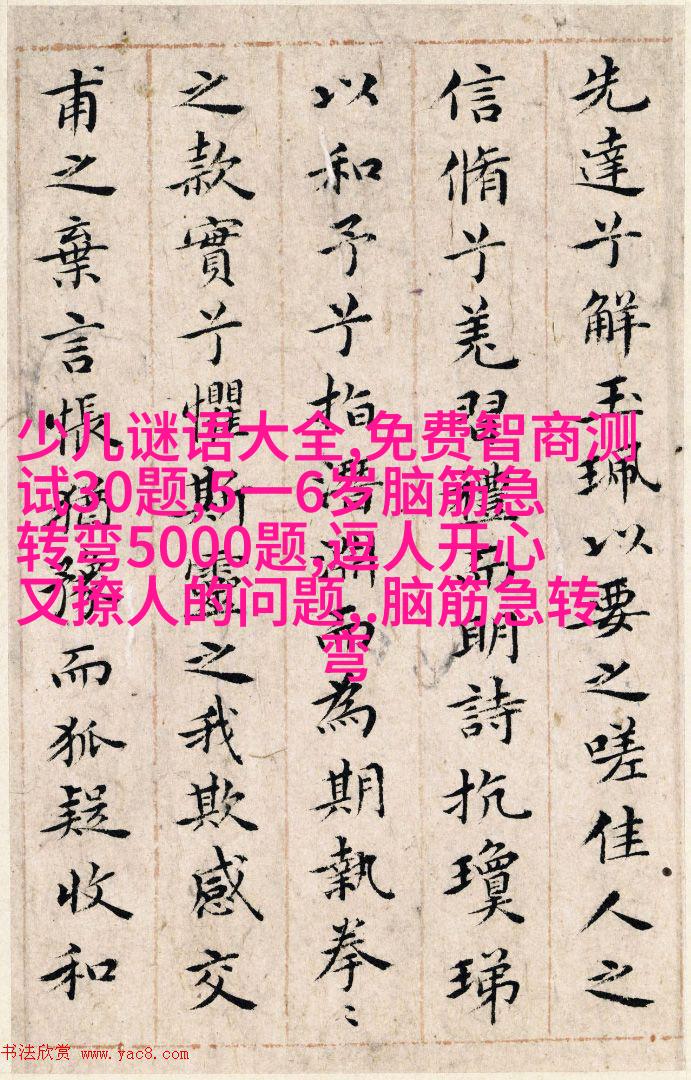 先達兮解玉珮以要之嗟佳人之
信脩兮羌習禮而明詩抗瓊珶
以和予兮指潛淵而為期執拳〻
之款實兮懼斯靈之我欺感交
甫之棄言悵猶豫而狐疑收和
少儿谜语大全,免费智商测
试30题,5一6岁脑筋急
转弯5000题,逗人开心
又撩人的问题,.脑筋急转
弯
书法欣赏 www.yac8.com